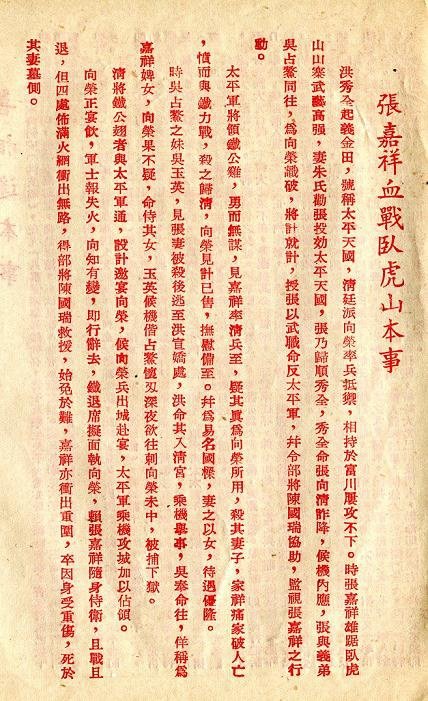 張嘉祥血戰臥虎山本事
洪秀全起義金田，號稱太平天國，清廷派向榮率兵抵禦，相持於富川屢攻不下。時張嘉祥雄踞臥虎
山山寨武藝高强，妻朱氏勸張投効太平天國，張乃歸順秀全，秀全命張向清詐降，候機內應，張與義弟
吳占鰲同往，爲向榮識破，將計就計，授張以武職命反太平軍，幷令部將陳國瑞協助，監視張嘉祥之行
動。
太平軍將領鐵公雞，勇而無謀，見嘉祥率清兵至，疑其眞爲向榮所用，殺其妻子，家祥痛家破人亡
，憤而與鐵力戰，殺之歸清，向榮見計已售，撫慰備至。幷爲易名國樑，妻之以女，待遇優隆。
時吳占鰲之妹吳玉英，見張妻被殺後逃至洪宣嬌處，洪命其入清宮，乘機舉事，吳奉命往，佯稱爲
嘉祥婢女，向榮果不疑，命侍其女，玉英候機偕占鰲懷刄深夜欲往刺向榮未中，被捕下獄。
清將鐵公翅者與太平軍通，設計邀宴向榮，候向榮兵出城赴宴，太平軍乘機攻城加以佔領。
向榮正宴飲，軍士報失火，向知有變，即行辭去，鐵退席擬面執向榮，賴張嘉祥隨身侍衛，且戰且
退，但四處佈滿火網衝出無路，得部將陳國瑞救援，始免於難，嘉祥亦衝出重圍，卒因身受重傷，死於
其妻墓側。